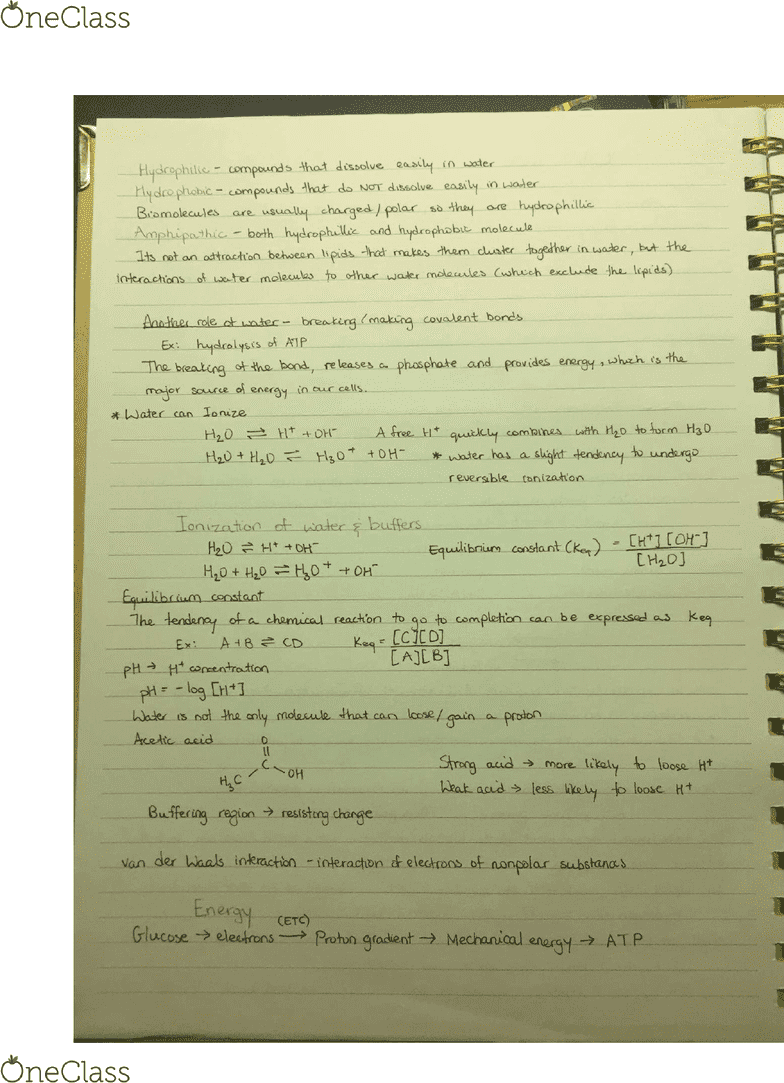 OneClass
Hydrophilic - compounds that dissolve easily in water
Hydrophobic - compounds that do NOT dissolve easily in water
Biomolecules are usually charged/polar so they are hydrophillic
Amphipathic - both hydrophillic and hydrophobic molecule
Its not an attraction between lipids that makes them cluster together in water, but the
interactions of water molecules to other water molecules (which exclude the lipids)
Another role of water - breaking/making covalent bonds
Ex: hydrolysis of ATP
The breaking of the bond, releases a phosphate and provides energy, which is the
major source of energy in our cells.
* Water can Ionize
H₂O ⇌ H⁺ + OH⁻ A free H⁺ quickly combines with H₂O to form H₃O
H₂O + H₂O ⇌ H₃O⁺ + OH⁻ * water has a slight tendency to undergo
reversible ionization
Ionization of water & buffers
H₂O ⇌ H⁺ + OH⁻ Equilibrium constant (Keq) = [H⁺][OH⁻] / [H₂O]
H₂O + H₂O ⇌ H₃O⁺ + OH⁻
Equilibrium constant
The tendency of a chemical reaction to go to completion can be expressed as Keq
Ex: A+B ⇌ CD Keq = [C][D] / [A][B]
pH → H⁺ concentration
pH = -log [H⁺]
Water is not the only molecule that can loose/gain a proton
Acetic acid
O
C
H₃C OH
Strong acid → more likely to loose H⁺
Weak acid → less likely to loose H⁺
Buffering region → resisting change
van der Waals interaction - interaction of electrons of nonpolar substances
Energy
(ETC)
Glucose → electrons ⟶ Proton gradient → Mechanical energy → ATP
OneClass